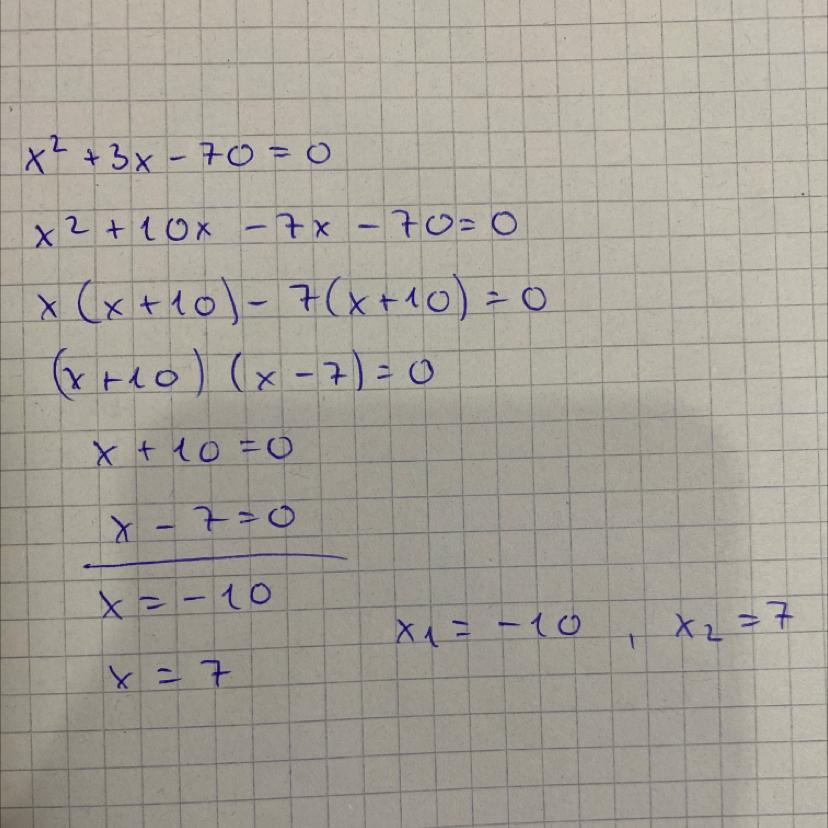 x² + 3x - 70 = 0
x² + 10x - 7x - 70 = 0
x (x + 10) - 7 (x + 10) = 0
(x + 10) (x - 7) = 0
x + 10 = 0
x - 7 = 0
x = - 10
x₁ = - 10 , x₂ = 7
x = 7